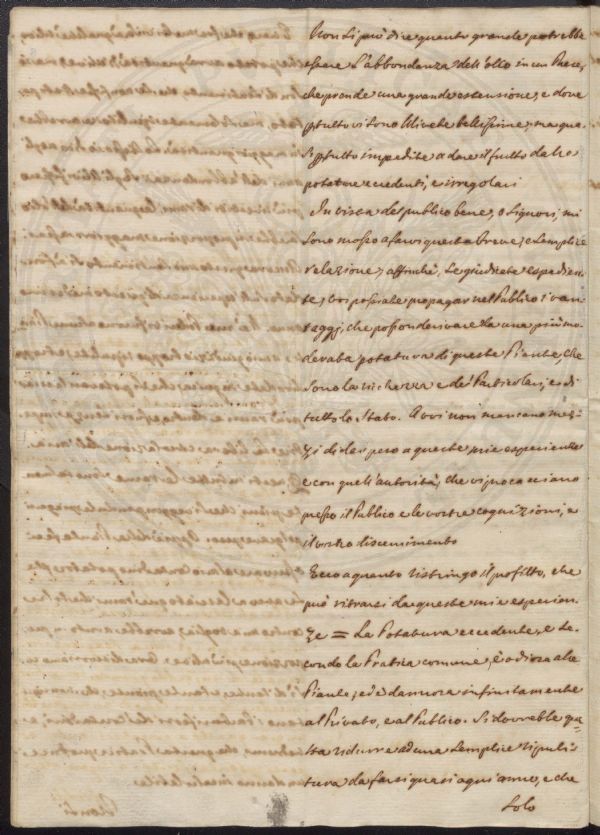 Non si può dire quanto grande potrebbe
essere l'abbondanza dell'olio in un Paese,
che prende una grande estensione, e dove
p tutto vi sono Uliveti bellissimi, ma qua
si p tutto impedite a dare il frutto dalle
potature eccedenti, e irregolari
In vista del publico bene, o Signori, mi
sono mosso a farvi questa breve, e semplice
relazione; affinchè, se giudicate espedien
te, voi possiate propagar nel Publico i van
taggj, che possono derivare da una più mo
derata potatura di queste Piante, che
sono la richezza e de' Particolari, e di
tutto lo Stato. A voi non mancano mez
zi di dar peso a queste mie esperienze
e con quell'autorità, che vi procacciano
presso il Publico e le vostre cognizioni, e
il vostro discernimento
Ecco a quanto ristringo il profitto, che
può ritrarsi da queste mie esperien
ze = La Potatura eccedente, e se
condo la Pratica comune, è odiosa alle
Piante; ed è dannosa infinitamente
al Privato, e al Publico. Si dovrebbe que
sta ridurre ad una semplice ripuli
tura da farsi quasi ogni anno, e che
solo